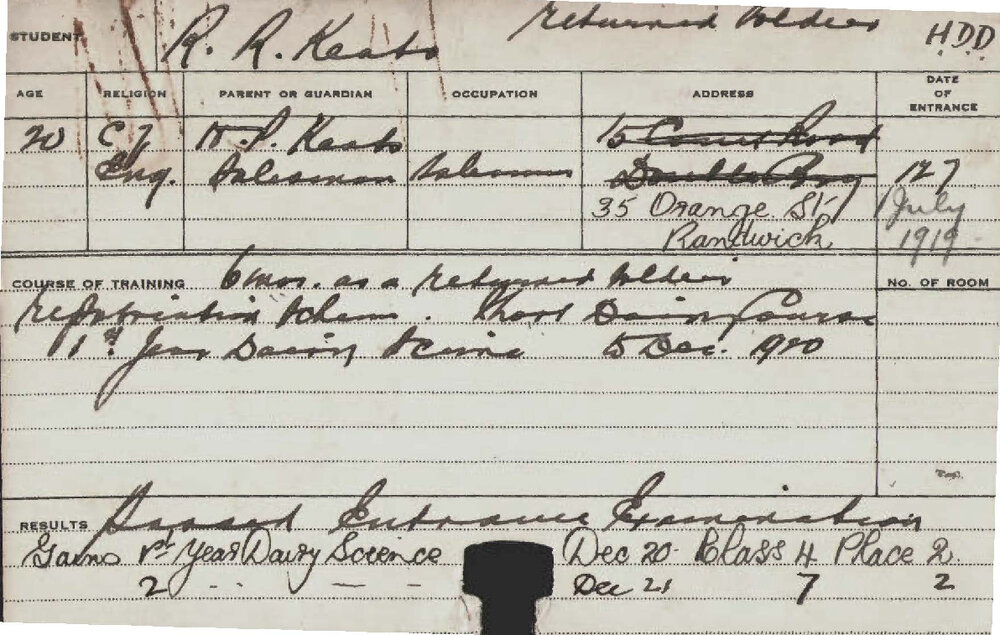 STUDENT R. R. Keats returned soldier HDD
AGE RELIGION PARENT OR GUARDIAN OCCUPATION ADDRESS DATE OF ENTRANCE
20 C of W. P. Keats 15 Court Road
Eng. Salesman Salesman Double Bay 127
35 Orange St, July
Randwick 1919
COURSE OF TRAINING 6 mos. as a returned soldier NO. OF ROOM
repatriation scheme. Short Dairy Course
1st Year Dairy Science 15 Dec. 1920
RESULTS Passed Entrance Examination
Gains 1st Year Dairy Science Dec 20 Class 4 Place 2
2 " — — Dec 21 7 2